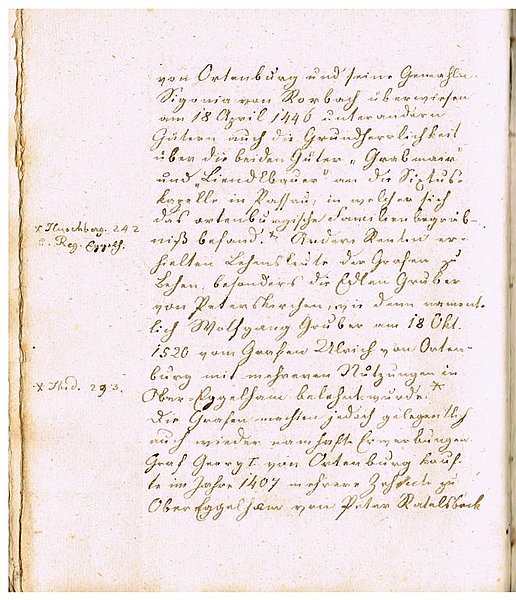 von Ortenburg und seine Gemahlin
Sigonia von Rorbach überwiesen
am 18 April 1446 unter andern
Gütern auch die Grundherrlichkeit
über die beiden Güter „Grabmaier"
und „Liendlbauer" an die Sixtus-
kapelle in Passau, in welcher sich
das ortenburgische Familienbegräb-
niß befand.* Andere Renten er-
hielten Lehensleute der Grafen zu
Lehen, besonders die Edlen Gruber
von Peterskirchen, wie denn nament-
lich Wolfgang Gruber am 18 Okt.
1520 vom Grafen Ulrich von Orten-
burg mit mehreren Nutzungen in
Ober-Eggelham belehnt wurde.*
Die Grafen machten jedoch gelegentlich
auch wieder namhafte Erwerbungen.
Graf Georg I. von Ortenburg kauf-
te im Jahre 1407 mehrere Zehente zu
Ober Eggelham von Peter Ratelsbeck
* Huschberg. 242
Reg. Eggelh.
* Ibid. 293.